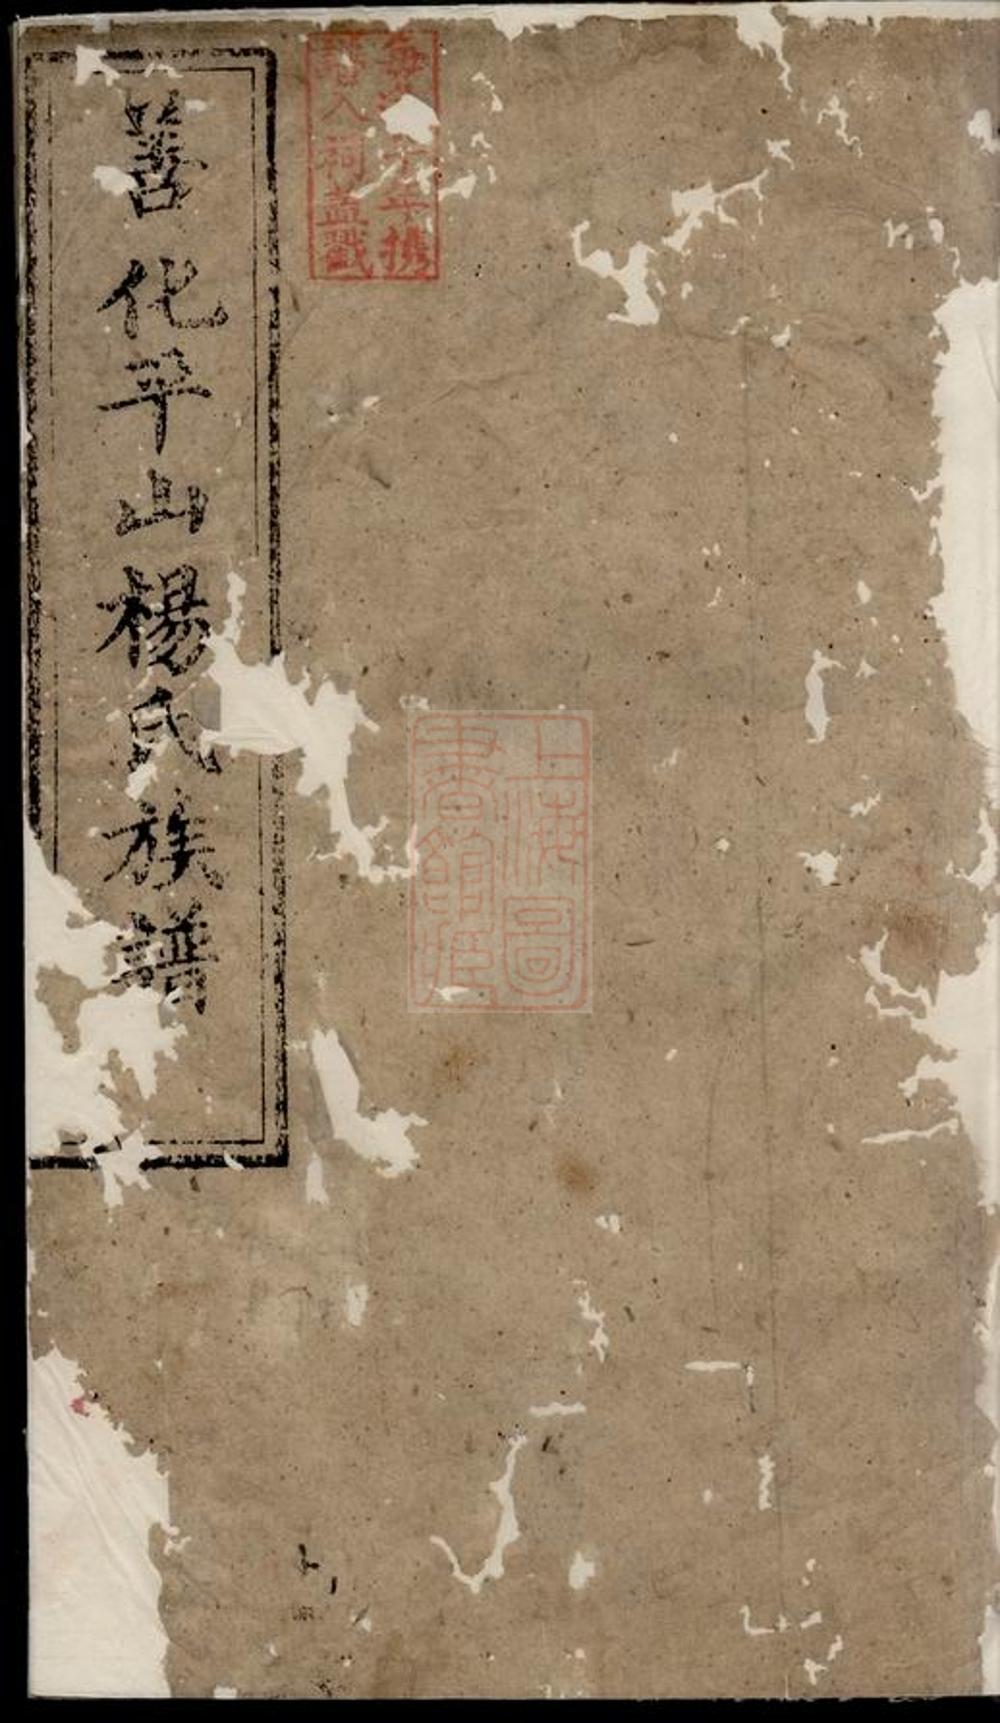 每 年携
譜入祠蓋戳
善化平山楊氏族譜
上海圖
書館藏